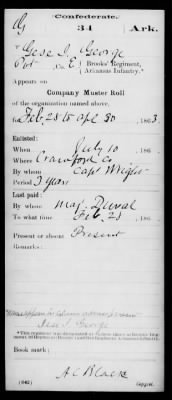 G
Confederate.
34
Ark.
Jese J. George
Pvt, Co. E, Brooks' Regiment,
Arkansas Infantry.*
Appears on
Company Muster Roll
of the organization named above,
for Feb 28 to Apl 30, 1863
Enlisted:
When July 10, 186
Where Crawford Co
By whom Capt Wright
Period 3 years
Last paid:
By whom Maj. Duval
To what time Feb 28, 186
Present or absent Present
Remarks:
Jese J. George
Book mark:
A C Black
(642)
Copyist.